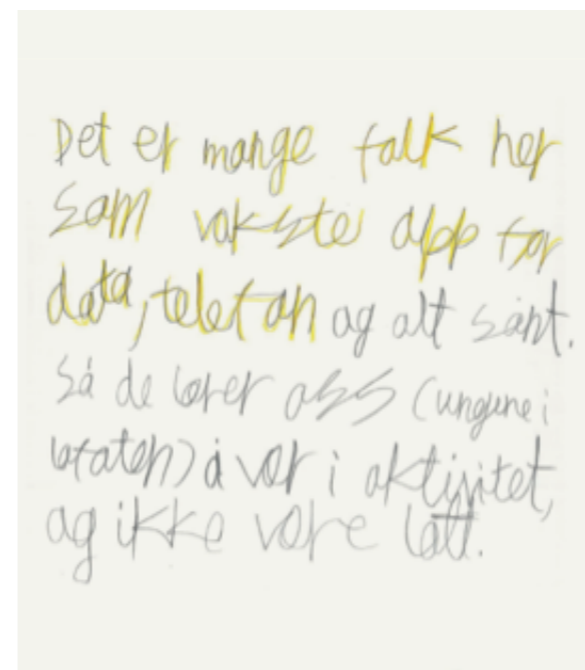 Det er mange folk her
som vokste opp før
data, telefon og alt sånt.
Så de lærer oss (ungene i
lofoten) å vær i aktivitet,
og ikke være latt.